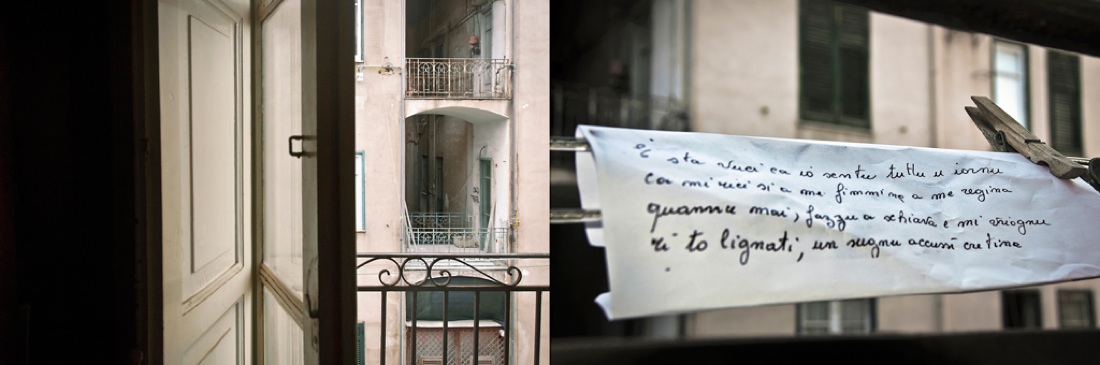 e' sta vuci ca io sentu tuttu u iornu
ca mi rici si a me fimmina a me regina
quannu mai, fazzu a schiava e mi vriognu
ri to lignati, un sugnu accussì cretina